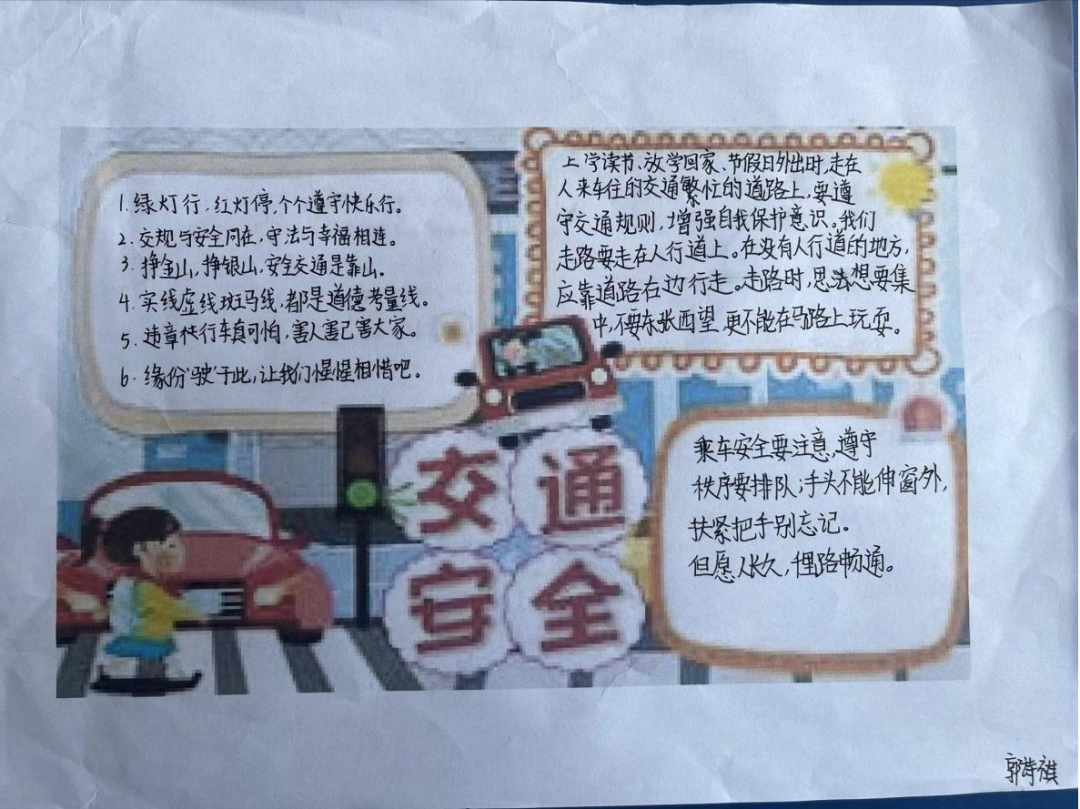 1.绿灯行,红灯停,个个遵守快乐行。
2.交规与安全同在,守法与幸福相连。
3.挣金山,挣银山,安全交通是靠山。
4.实线虚线斑马线,都是道德考量线。
5.违章代行车真可怕,害人害己害大家。
6.缘份"驶"于此,让我们惺惺相惜吧。
上学读书、放学回家、节假日外出时,走在
人来车往的交通繁忙的道路上,要遵
守交通规则,增强自我保护意识。我们
走路要走在人行道上。在没有人行道的地方,
应靠道路右边行走。走路时,思想要集
中,不要东张西望,更不能在马路上玩耍。
交通
安全
乘车安全要注意,遵守
秩序要排队;手头不能伸窗外,
扶紧把手别忘记。
但愿人长久,里路畅通。
郭诗祺